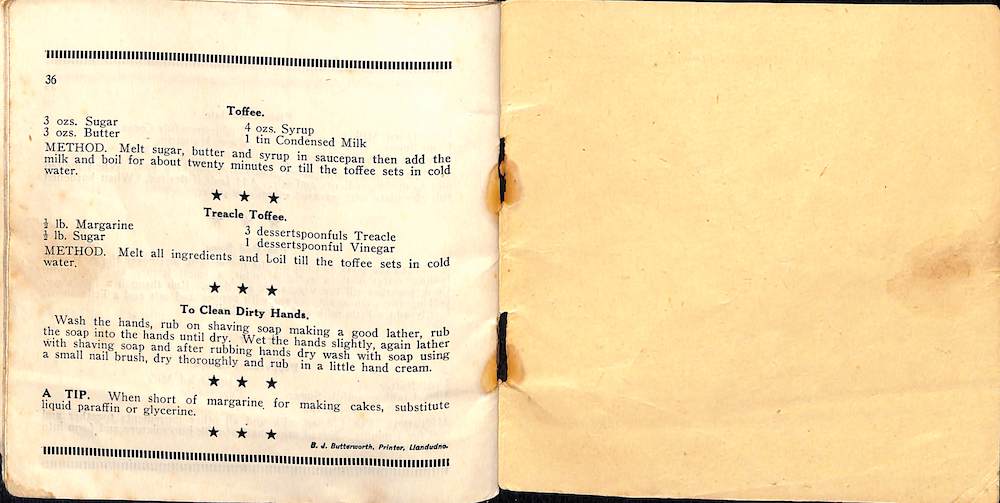 36
Toffee.
3 ozs. Sugar
4 ozs. Syrup
3 ozs. Butter
1 tin Condensed Milk
METHOD. Melt sugar, butter and syrup in saucepan then add the
milk and boil for about twenty minutes or till the toffee sets in cold
water.
★ ★ ★
Treacle Toffee.
½ lb. Margarine
3 dessertspoonfuls Treacle
½ lb. Sugar
1 dessertspoonful Vinegar
METHOD. Melt all ingredients and Loil till the toffee sets in cold
water.
★ ★ ★
To Clean Dirty Hands.
Wash the hands, rub on shaving soap making a good lather, rub
the soap into the hands until dry. Wet the hands slightly, again lather
with shaving soap and after rubbing hands dry wash with soap using
a small nail brush, dry thoroughly and rub in a little hand cream.
★ ★ ★
A TIP. When short of margarine for making cakes, substitute
liquid paraffin or glycerine.
★ ★ ★
B. J. Butterworth, Printer, Llandudno.